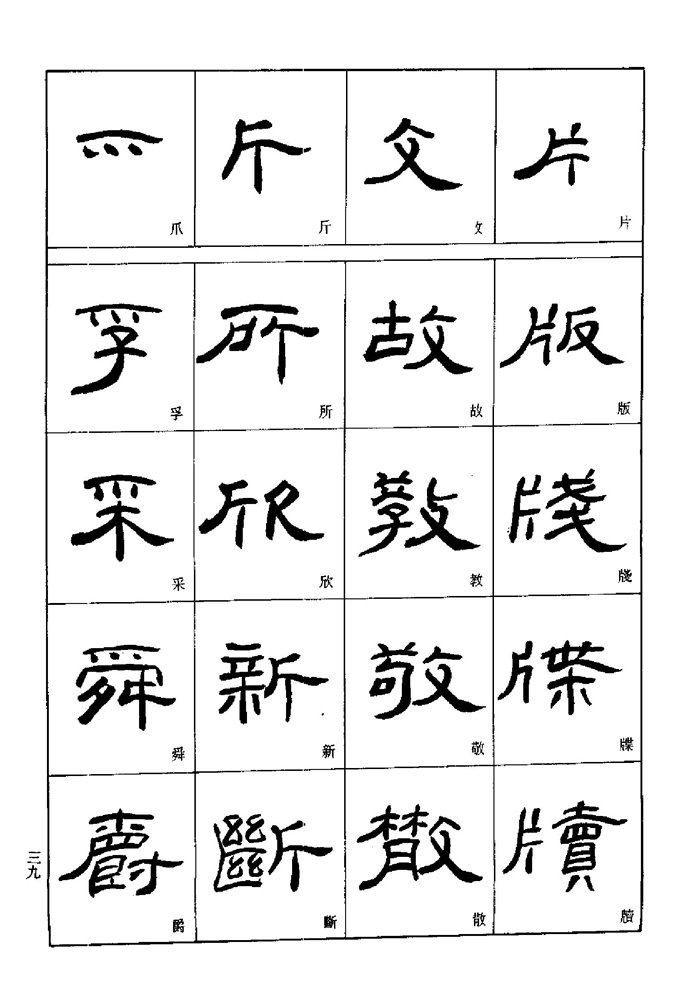 片 片
版 版
牋 牋
牒 牒
牘 牘
攵 攵
故 故
教 教
敬 敬
散 散
斤 斤
所 所
欣 欣
新 新
斷 斷
爫 爪
孚 孚
采 采
舜 舜
爵 爵
三九